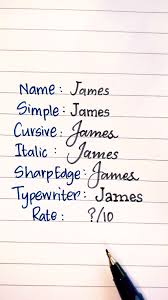 Name: James
Simple: James
Cursive: James
Italic: James
SharpEdge: James
Typewriter: James
Rate: ?/10